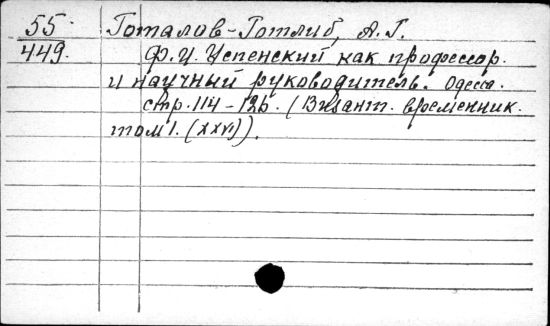 55. Готалов-Готлиб, А. Г.
449. Ф. И. Успенский как профессор.
и научный руководитель. Одесса.
стр. 114-126. (Визант. временник.
том 1. (XXVI)).